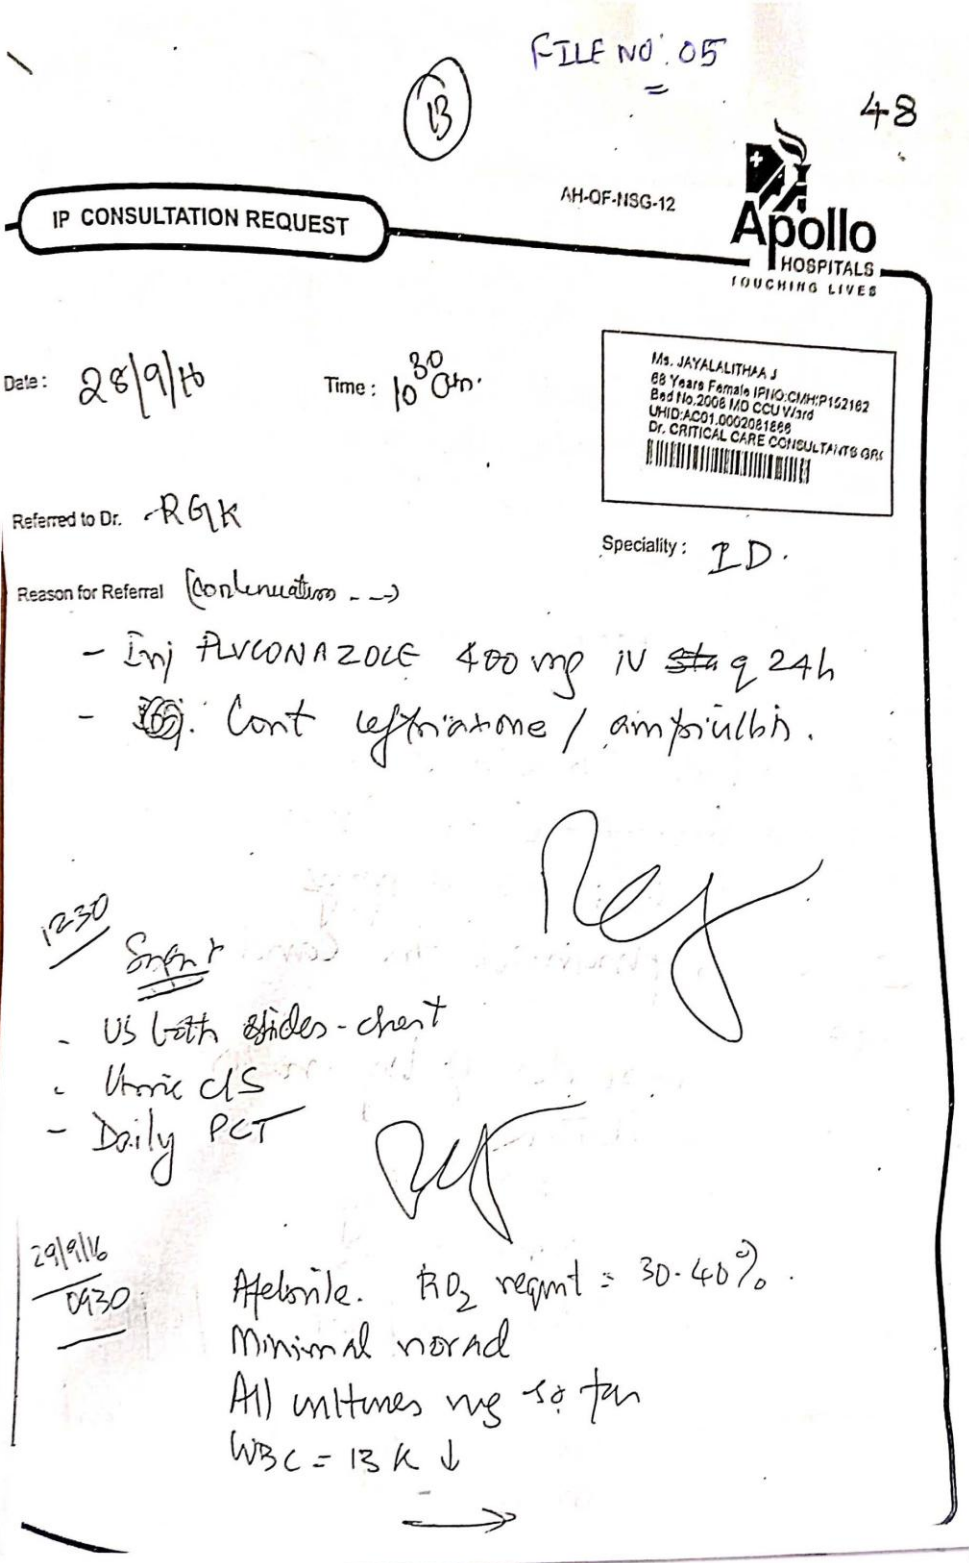 FILE NO: 05
13
48
AH-QF-NSG-12
Apollo
HOSPITALS
TOUCHING LIVES
IP CONSULTATION REQUEST
Date: 28/9/16 Time: 10 30 am.
Ms. JAYALALITHAA J
68 Years Female IPNO:CMH:P152162
Bed No.2008 MD CCU Ward
UHID:AC01.0002081866
Dr. CRITICAL CARE CONSULTANTS GR
Referred to Dr. RGK
Speciality: ID.
Reason for Referral (Continuation --->
- Inj FLUCONAZOLE 400 mg IV q 24h
- Cont ceftriaxone / ampicillin.
1230
- US both sides - chest
- Urine c/s
- Daily PCT
29/9/16
0930
Afebrile. FiO2 reqmt = 30-40%.
Minimal norad
All cultures neg so far
WBC = 13 K ↓
→